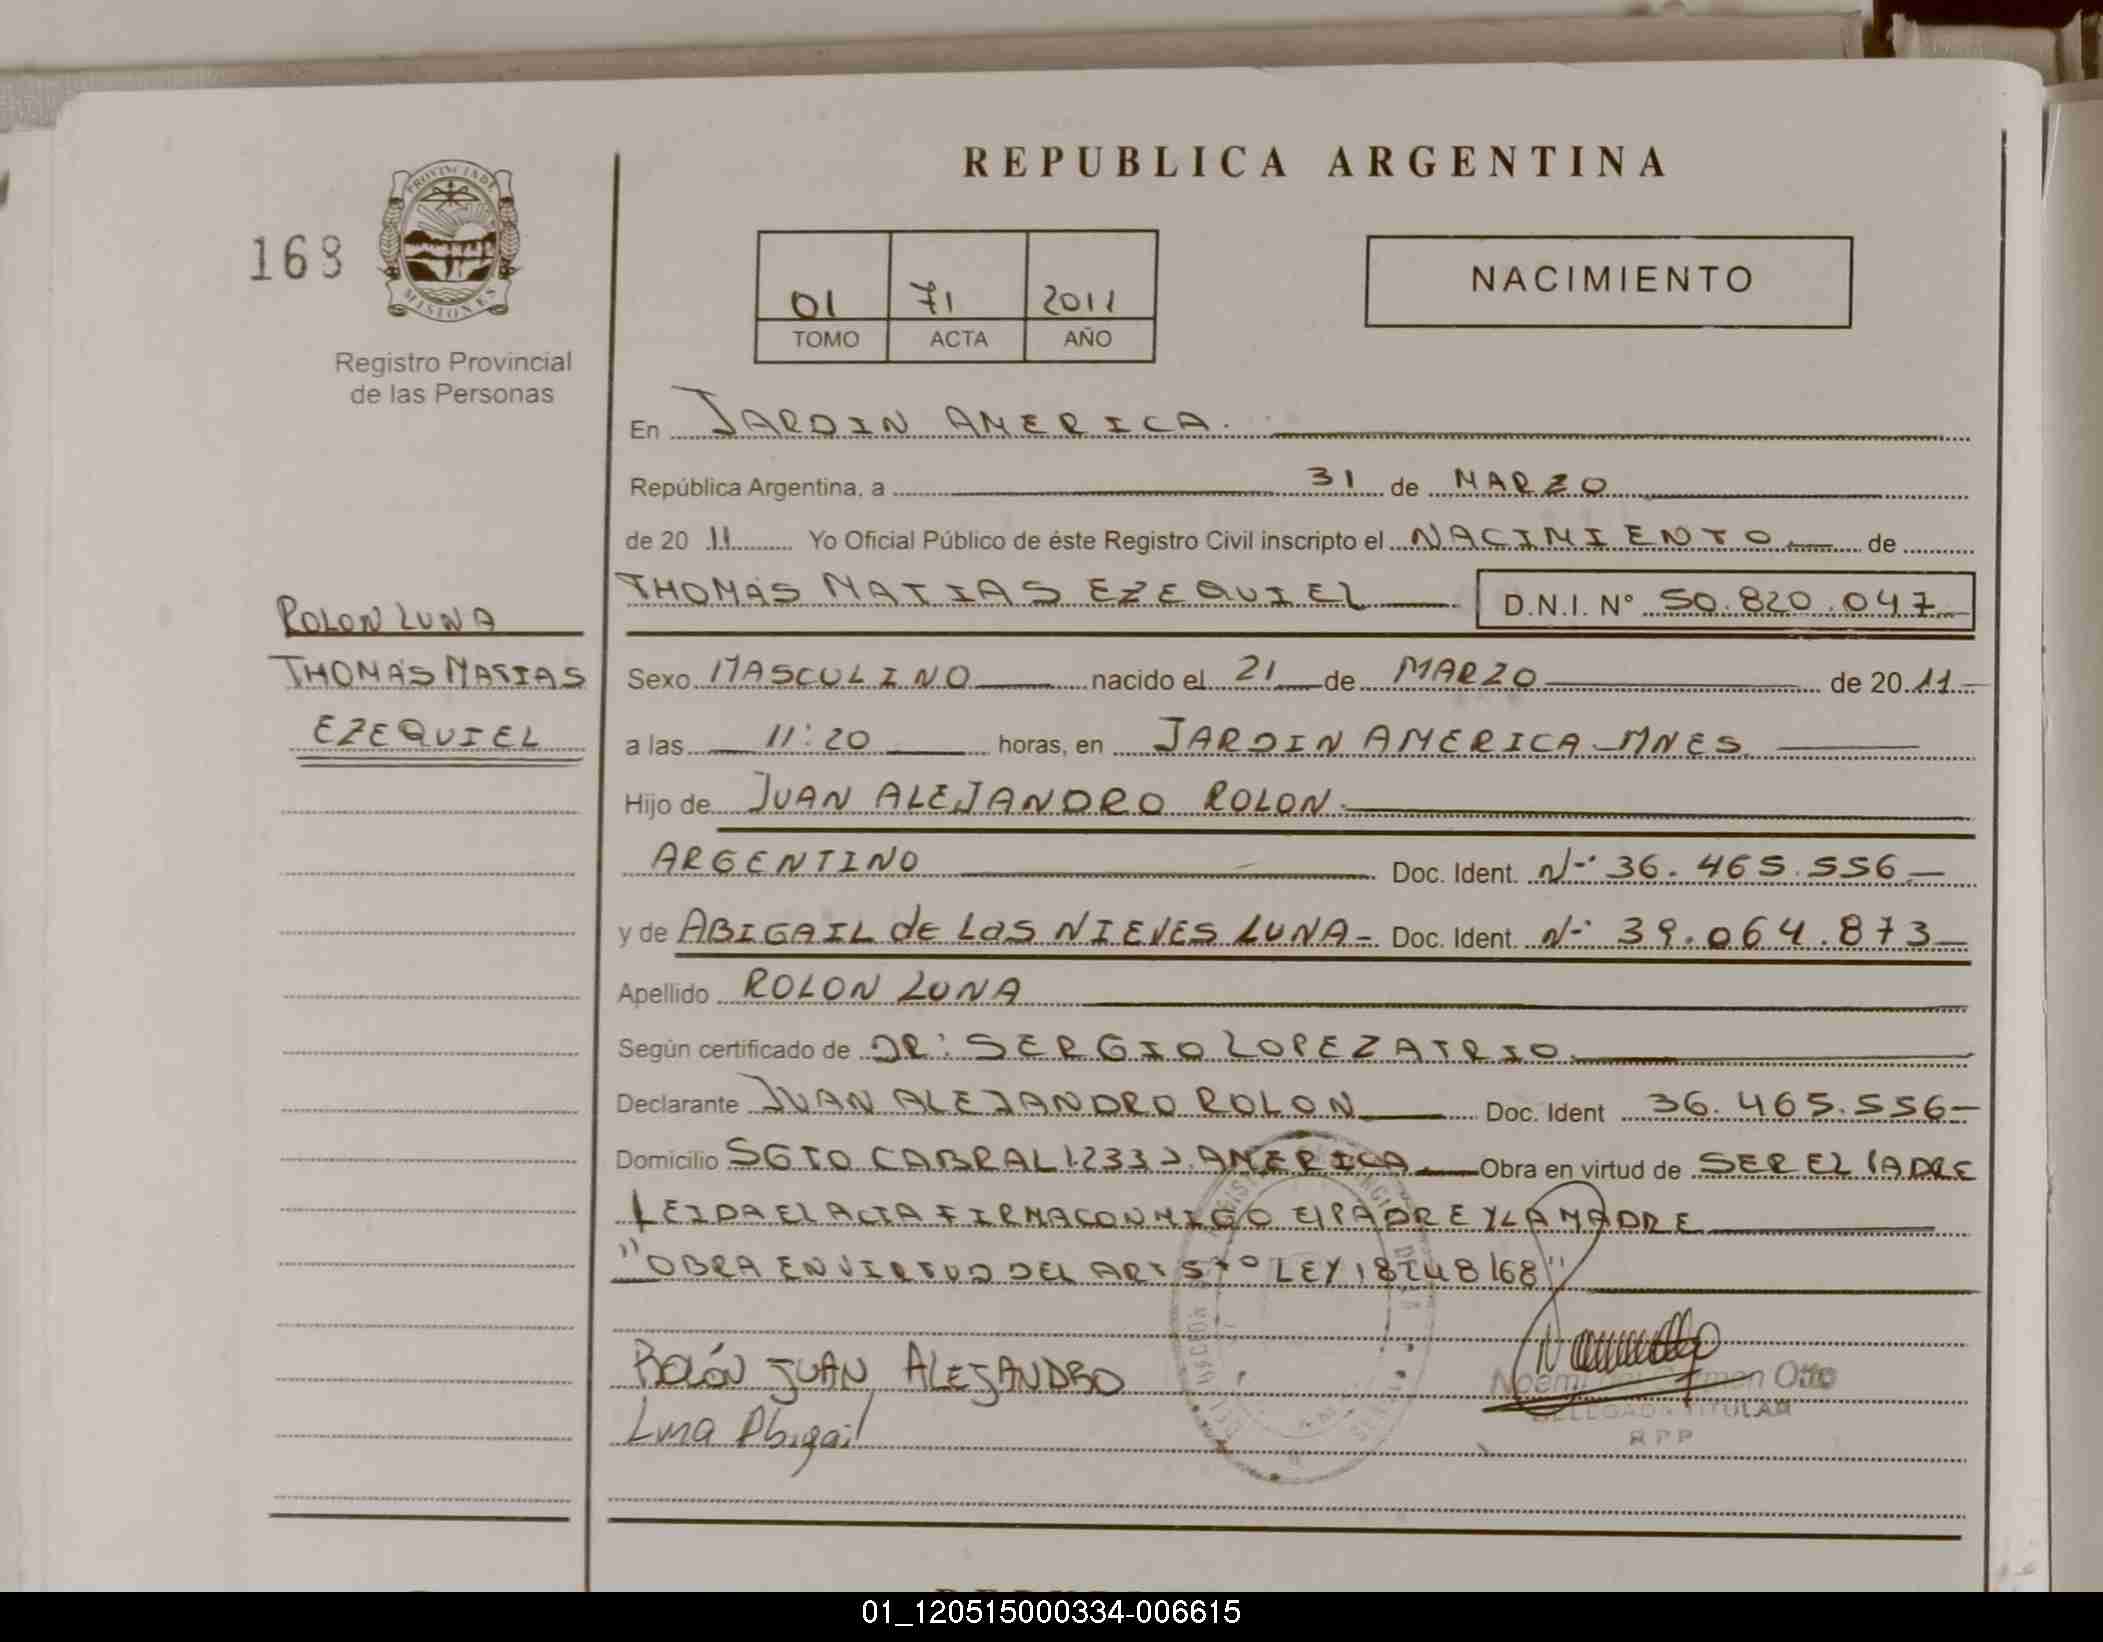 REPUBLICA ARGENTINA
168
PROVINCIA DE
MISIONES
Registro Provincial
de las Personas
01 71 2011
TOMO ACTA AÑO
NACIMIENTO
En JARDIN AMERICA.
República Argentina, a 31 de MARZO
de 20 11 Yo Oficial Público de éste Registro Civil inscripto el NACIMIENTO de
THOMÁS MATIAS EZEQUIEL D.N.I. N° 50.820.047
ROLON LUNA
THOMÁS MATIAS
EZEQUIEL
Sexo MASCULINO nacido el 21 de MARZO de 20 11
a las 11:20 horas, en JARDIN AMERICA-MNES
Hijo de JUAN ALEJANDRO ROLON.
ARGENTINO Doc. Ident. N° 36.465.556
y de ABIGAIL de LAS NIEVES LUNA- Doc. Ident. N° 39.064.873
Apellido ROLON LUNA
Según certificado de DR: SERGIO LOPEZ ATRIO
Declarante JUAN ALEJANDRO ROLON Doc. Ident 36.465.556-
Domicilio SGTO CABRAL 1233 J. AMERICA Obra en virtud de SER EL PADRE
LEIDA EL ACTA FIRMA CONMIGO El PADRE Y LA MADRE
"OBRA EN VIRTUD DEL ART 5to LEY 18248/68"
ROLÓN JUAN ALEJANDRO
Luna Abigail
Noemi Otto
DELEGADA TITULAR
RPP
01_120515000334-006615